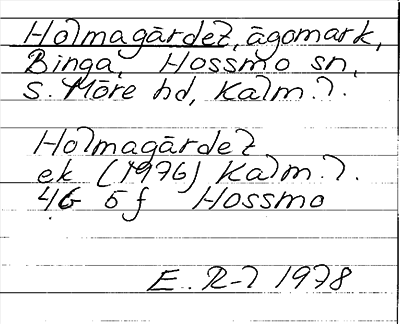 Holmagärdet, ägomark,
Binga, Hossmo sn,
S. Möre hd, Kalm. l.
Holmagärdet
ek (1976) Kalm. l.
4G 5 f Hossmo
E. R-l 1978